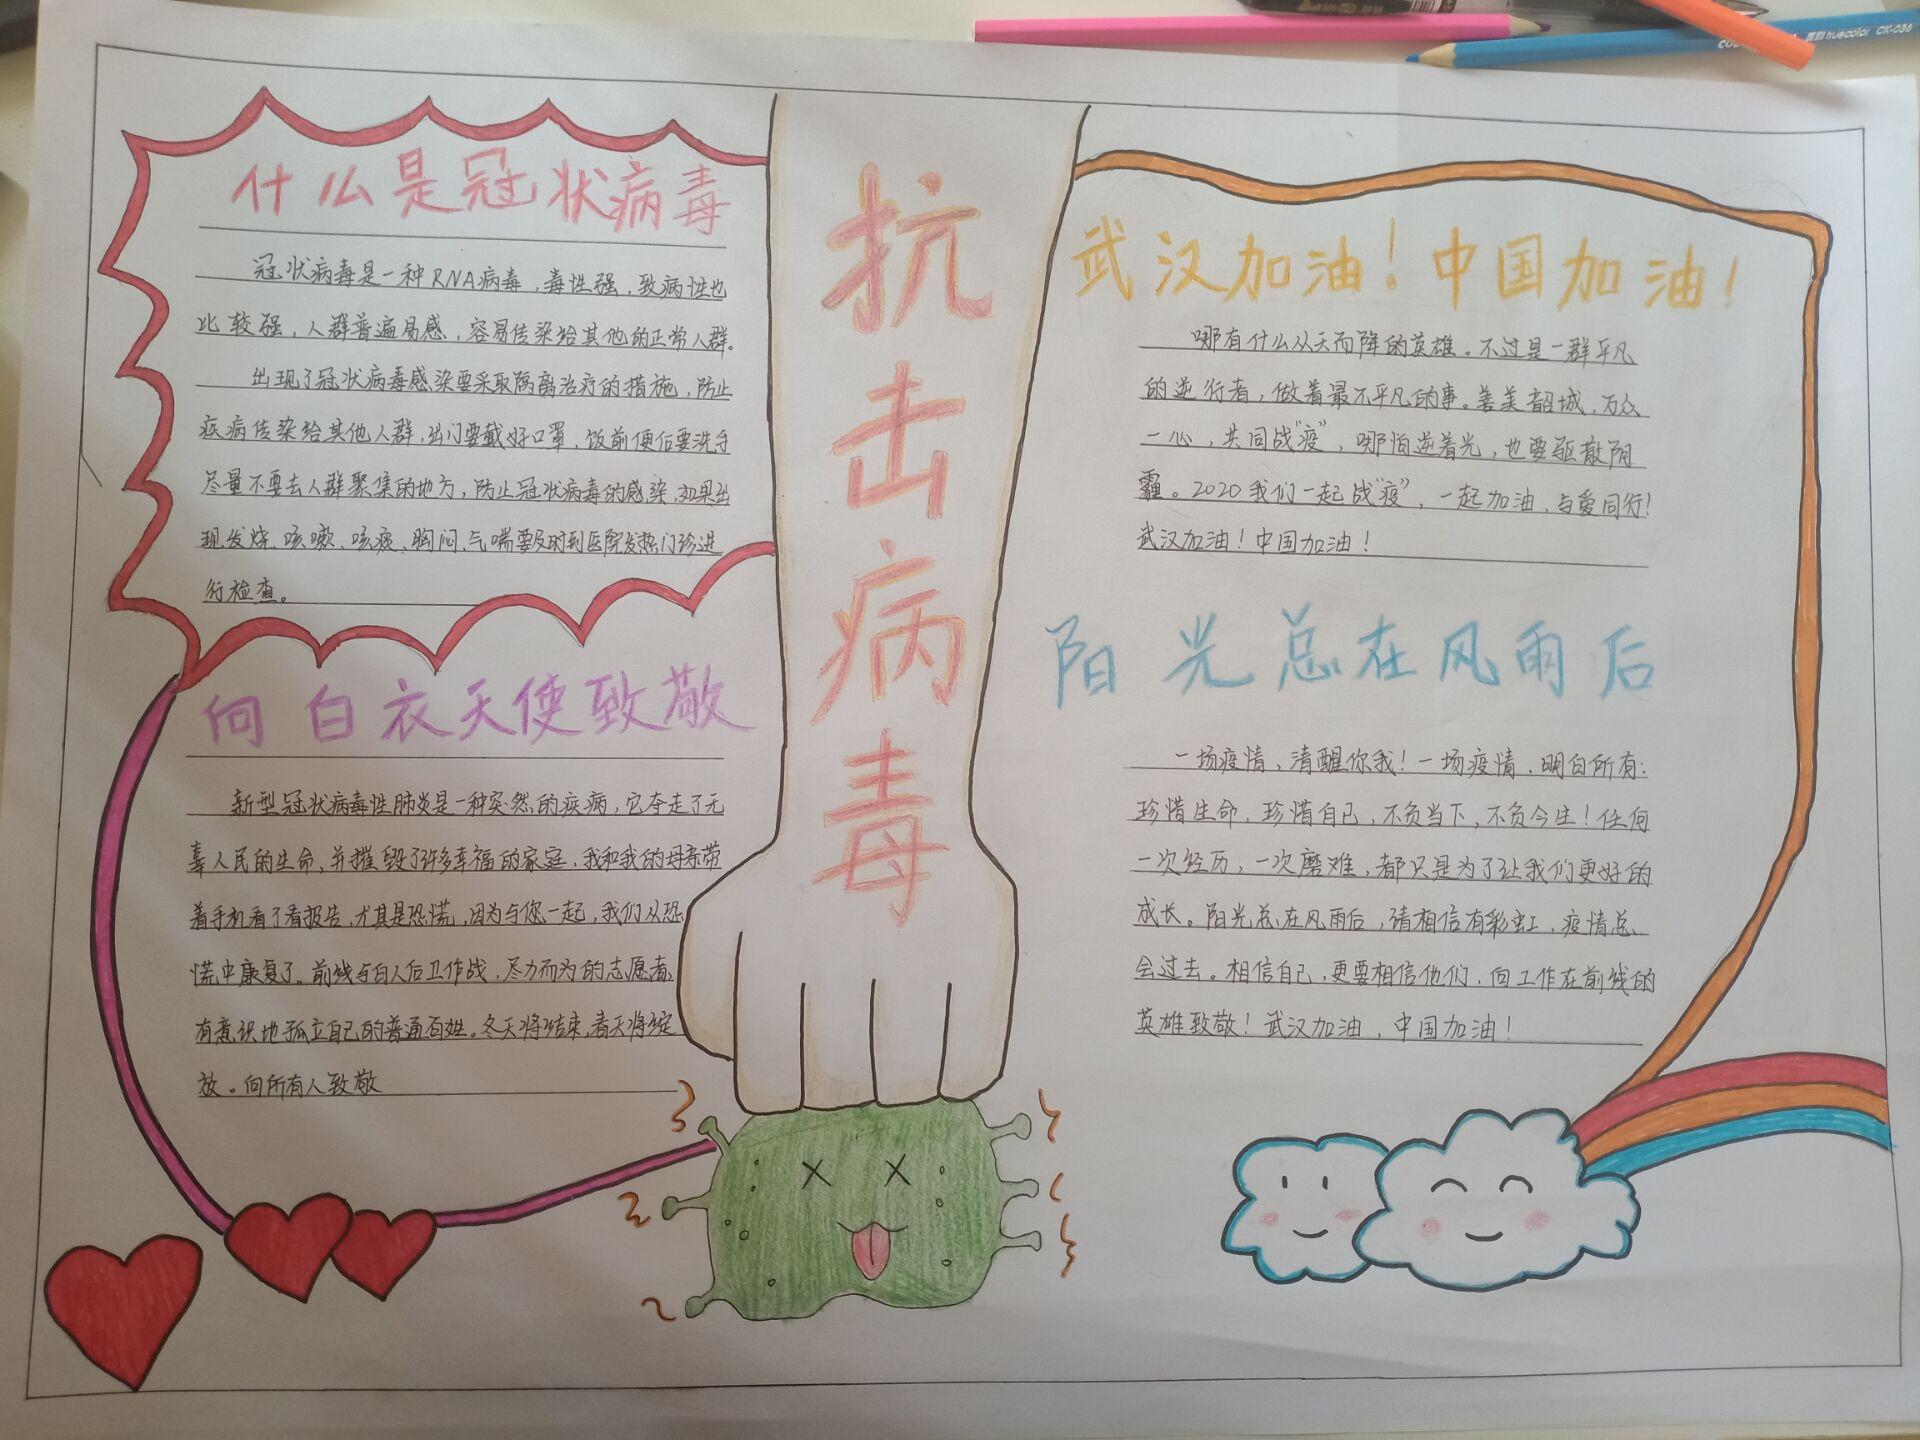 什么是冠状病毒
冠状病毒是一种RNA病毒，毒性强，致病性也
比较强，人群普遍易感，容易传染给其他的正常人群。
出现了冠状病毒感染要采取隔离治疗的措施，防止
疾病传染给其他人群，出门要戴好口罩，饭前便后要洗手
尽量不要去人群聚集的地方，防止冠状病毒的感染，如果出
现发烧、咳嗽、咳痰、胸闷、气喘要及时到医院发热门诊进
行检查。
向白衣天使致敬
新型冠状病毒性肺炎是一种突然的疾病，它夺走了无
辜人民的生命，并摧毁了许多幸福的家庭，我和我的母亲带
着手机看了看报告，尤其是恐慌，因为与您一起，我们从恐
慌中康复了。前线与白人后卫作战，尽力而为的志愿者，
有意识地孤立自己的普通百姓。冬天将结束，春天将绽
放。向所有人致敬
抗击病毒
武汉加油！中国加油！
哪有什么从天而降的英雄。不过是一群平凡
的逆行者，做着最不平凡的事。善美韶城，万众
一心，共同战“疫”，哪怕逆着光，也要驱散阴
霾。2020我们一起战“疫”，一起加油，与爱同行！
武汉加油！中国加油！
阳光总在风雨后
一场疫情，清醒你我！一场疫情，明白所有：
珍惜生命，珍惜自己，不负当下，不负今生！任何
一次经历，一次磨难，都只是为了让我们更好的
成长。阳光总在风雨后，请相信有彩虹，疫情总
会过去。相信自己，更要相信他们，向工作在前线的
英雄致敬！武汉加油，中国加油！
truecolor CK-036